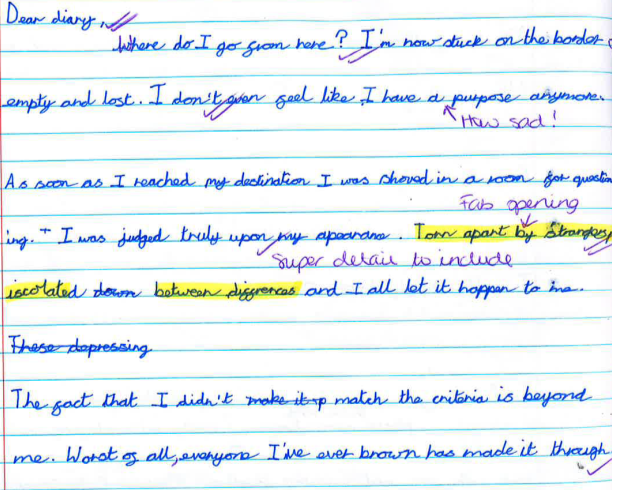 Dear diary,
Where do I go from here? I'm now stuck on the border
empty and lost. I don't even feel like I have a purpose anymore.
How sad!
As soon as I reached my destination I was shoved in a room for question
Fab opening
ing. I was judged truly upon my apearance. Torn apart by Strangers,
Super detail to include
iscolated down between diffrences and I all let it happen to me.
These depressing
The fact that I didn't make it up match the criteria is beyond
me. Worst of all, everyone I've ever known has made it through